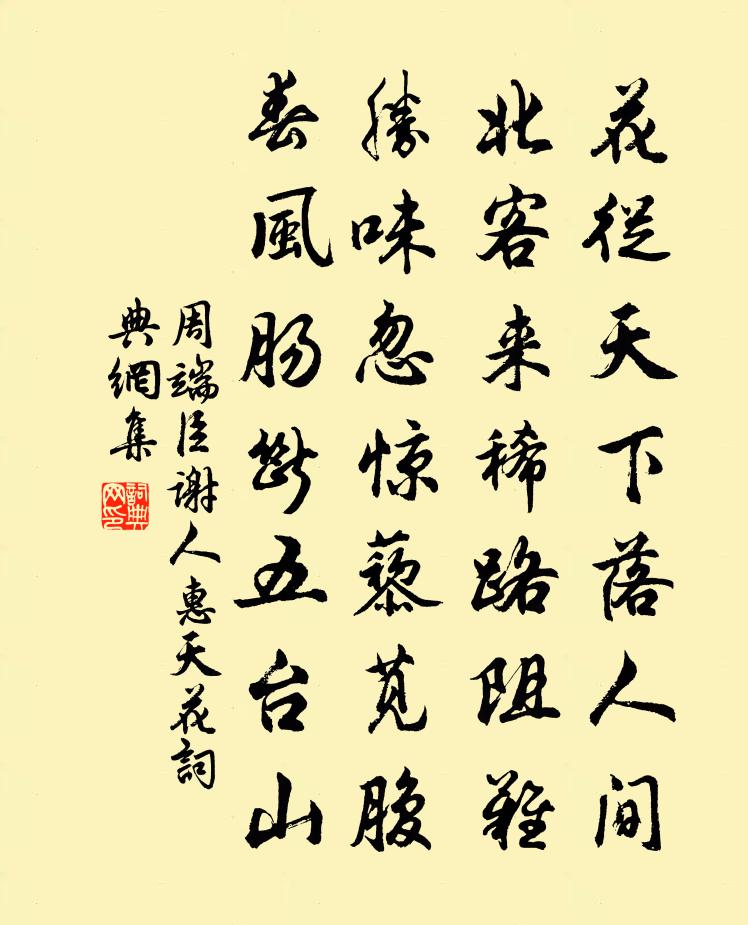 花從天下落人间
北客来稀路阻難
勝味忽惊藜莧腹
春風肠斷五台山
周端臣谢人惠天花詞
典網集
詞典网印